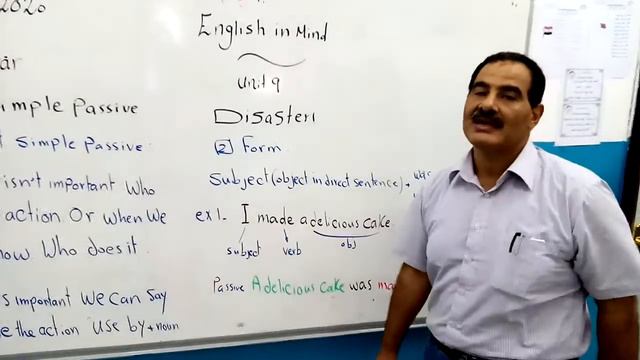 2020
English in Mind
Unit 9
Simple Passive
Simple Passive
isn't important who
action Or when We
now Who does it
s important We can Say
e the action use by + noun
Disasters
2 Form
Subject (object in direct sentence) +
ex 1- I made a delicious cake
subject verb obj
Passive A delicious cake was ma